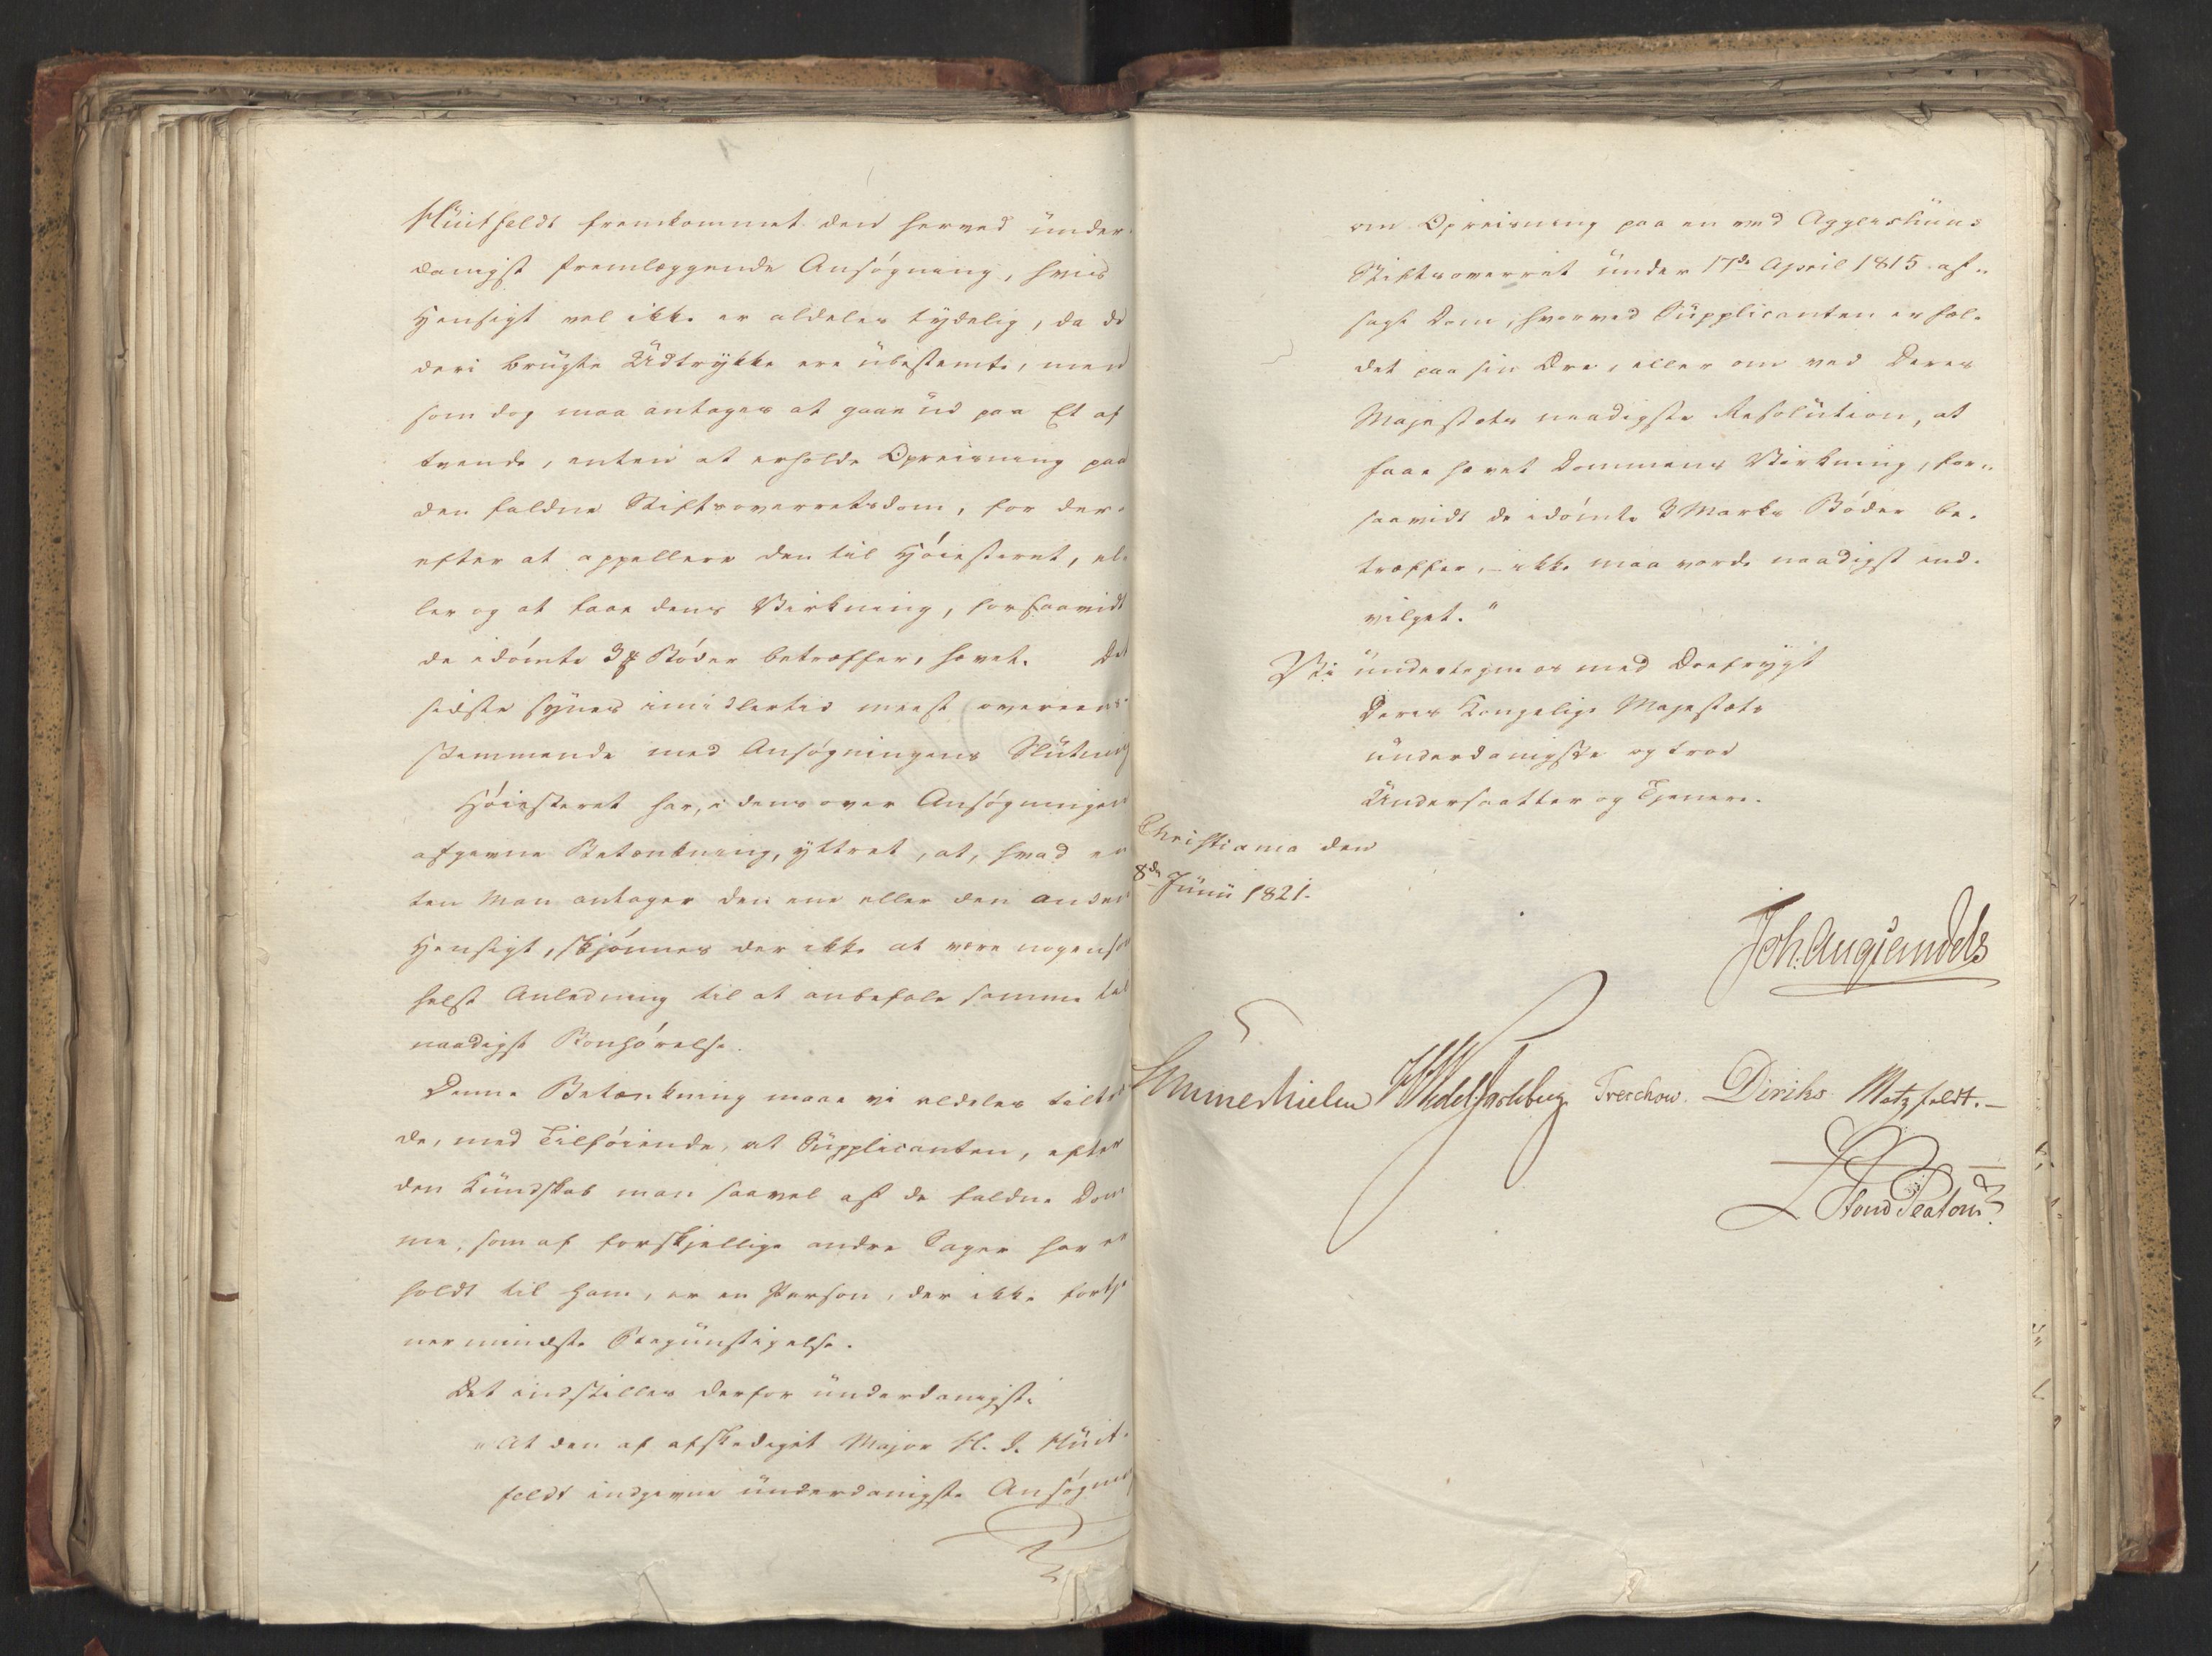 Hüitfeldt fremkommet den herved under-
danigst fremlæggende Ansøgning, hvis
Hensigt vel ikke er aldeles tydelig, da de
deri brugte Udtrykke ere ubestemte, men
som dog maa antages at gaae ud paa Et af
tvende, enten at erholde Opreisning paa
den faldne Stiftsoverretsdom, for der-
efter at appellere den til Høiesteret, el-
ler og at faae dens Virkning, forsaavidt
de idømte 3 Bøder betræffer, hævet. Det
sidste synes imidlertid meest overeens-
stemmende med Ansøgningens Slutning
Høiesteret har, i dens over Ansøgningen
afgivne Betænkning, yttret, at, hvad en
ten man antager den ene eller den anden
Hensigt, skjønnes der ikke at være nogensom
helst Anledning til at anbefale samme til
naadigst Bønhørelse.
Denne Betænkning maae vi aldeles tiltræ
de, med Tilføiende, at Supplicanten, efter
den Kundskab man saavel af de faldne Dom
me, som af forskjellige andre Sager har er
holdt til ham, er en Person, der ikke fortje
ner mindste Begunstigelse.
Det indstilles derfor underdanigst:
"At den af afskediget Major H. J. Hüit-
feldt indgivne underdanigste Ansøgning
om Opreisning paa en ved Aggershuus
Stiftsoverret under 17de April 1815 af-
sagt Dom, hvorved Supplicanten er fæl-
det paa sin Ære, eller om ved Deres
Majestæts naadigste Resolution, at
faae hævet Dommens Virkning, for-
saavidt de idømte 3 Marks Bøder be-
træffer, - ikke maa vorde naadigst ind-
vilget."
Vi undertegne os med Ærefrygt
Deres Kongelige Majestæts
underdanigste og troe
Undersaatter og Tjenere.
Christiania den
8de Junii 1821.
Joh. Aug. Sandels
Sommerhielm Wedel Jarlsberg Treschow. Diriks Motzfeldt. -